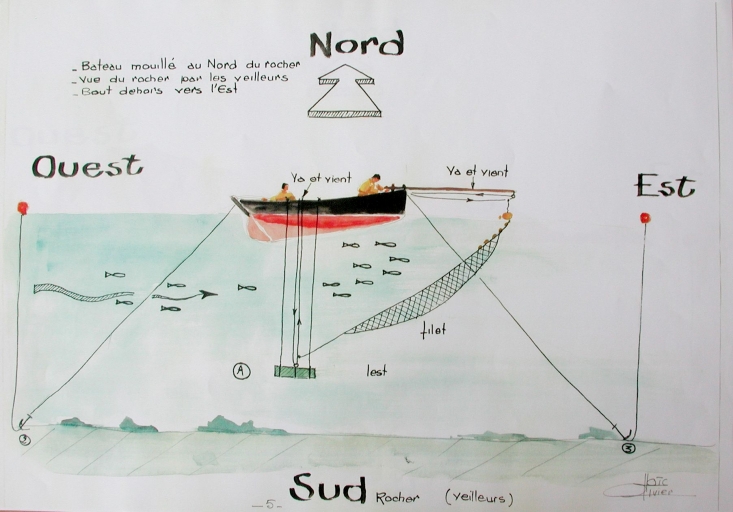 Nord
- Bateau mouillé au Nord du rocher
- Vue du rocher par les veilleurs
- Bout dehors vers l'Est
Ouest
Va et vient
Va et vient
Est
filet
A
lest
3
3
Sud Rocher (veilleurs)
- 5 -
Loïc
Olivier